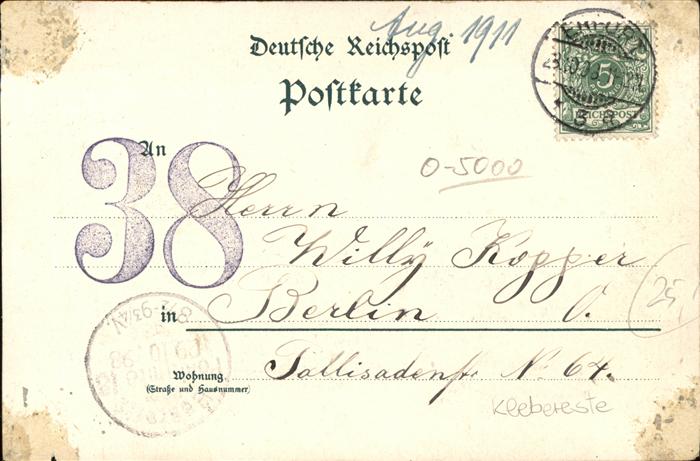 Aug 1911
Deutsche Reichspost
Postkarte
ERFURT
5
REICHSPOST
An
38
0-5000
Herrn
Willy Kopper
25
Berlin O.
in
Wohnung
(Straße und Hausnummer)
Pallisadenstr N. 64.
Klebereste